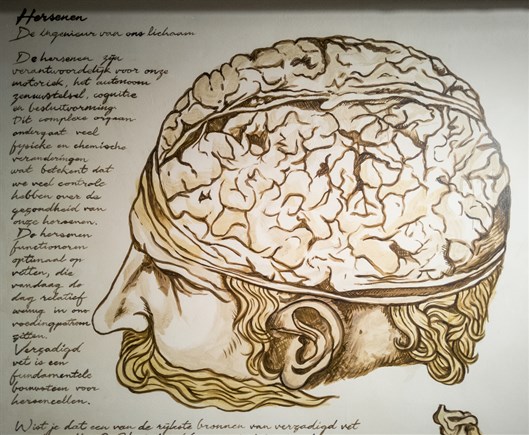 Hersenen
De ingenieur van ons lichaam
De hersenen zijn
verantwoordelijk voor onze
motoriek, het autonoom
zenuwstelsel, cognitie
en besluitvorming.
Dit complexe orgaan
ondergaat veel
fysieke en chemische
veranderingen
wat betekent dat
we veel controle
hebben over de
gezondheid van
onze hersenen.
De hersenen
functioneren
optimaal op
vetten, die
vandaag de
dag relatief
weinig in ons
voedingpatroon
zitten.
Verzadigd
vet is een
fundamentele
bouwsteen voor
hersencellen.
Wist je dat een van de rijkste bronnen van verzadigd vet